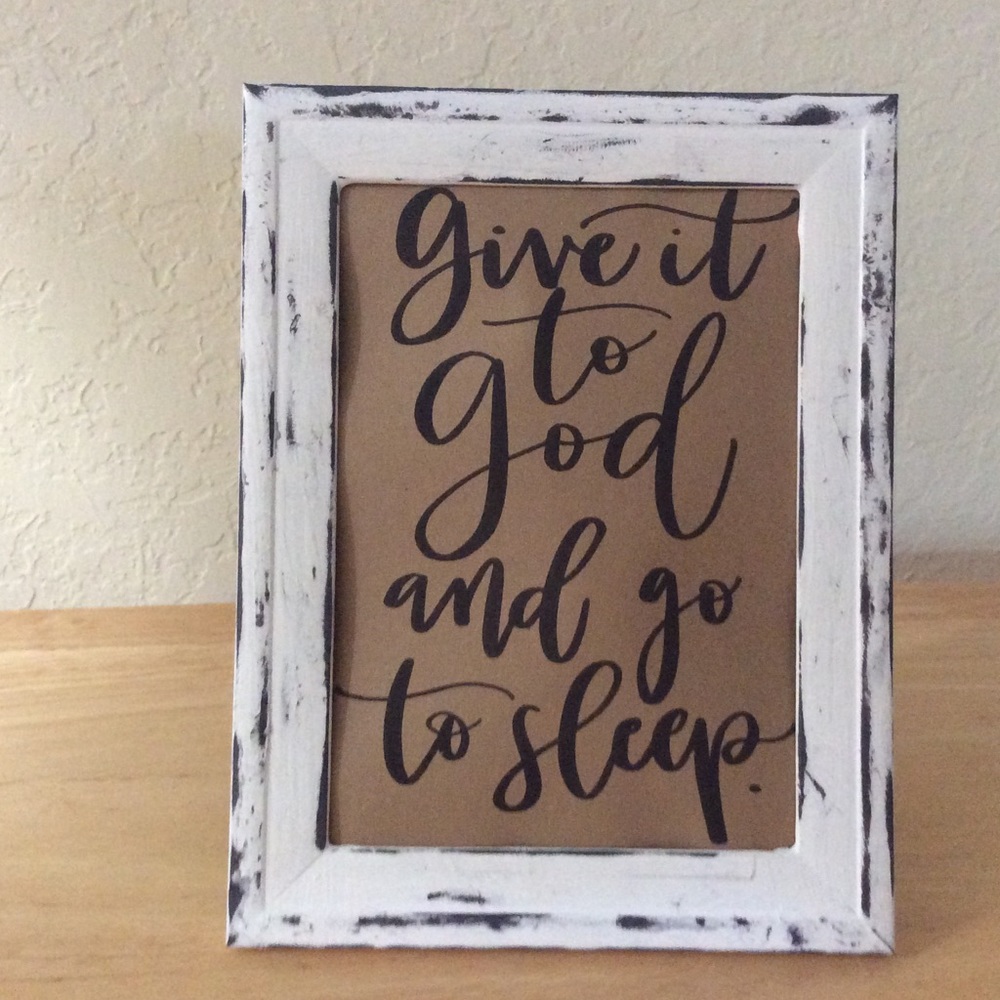 give it
to
god
and go
to sleep.